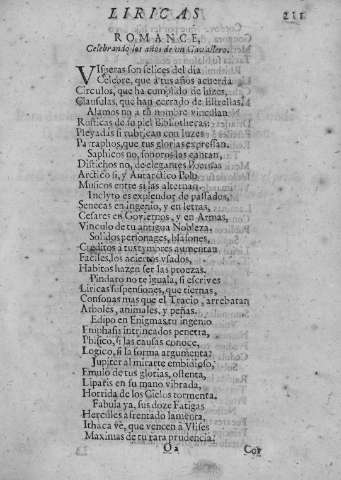 LIRICAS 211
ROMANCE,
Celebrando los años de un Cavallero.
VIsperas son felices del dia
Celebre, que a tus años acuerda
Circulos, que ha cumplido de luzes,
Clausulas, que han cerrado de Estrellas.
Alamos no a tu nombre vinculan
Rusticas de su piel Bibliothecas:
Pleyadas si rubrican con luzes
Paraphos, que tus glorias expressan.
Saphicos no, sonoros las cantan,
Distichos no, de elegantes Poetisas
Arctico si, y Antarctico Polo
Musicos entre si las alternan.
Inclyto es explendor de passados,
Senecas en ingenio, y en letras,
Cesares en Goviernos, y en Armas,
Vinculo de tu antigua Nobleza,
Solidos personages, blasones,
Creditos a tus tymbres aumentan
Faciles, los aciertos usados,
Habitos hazen ser las proezas.
Pindaro no te iguala, si escrives
Liricas suspensiones, que tiernas,
Consonas mas que el Tracio, arrebatan
Arboles, animales, y peñas.
Edipo en Enigmas, tu ingenio
Emphasis intrincados penetra,
Phisico, si las causas conoce,
Logico, si la forma argumenta.
Jupiter al mirarte embidioso,
Emulo de tus glorias, ostenta,
Liparis en su mano vibrada,
Horrida de los Cielos tormenta.
Fabula ya, sus doze Fatigas
Hercules afrentado lamenta,
Ithaca vè, que vencen a Ulises
Maximas de tu rara prudencia.
Oa Cor